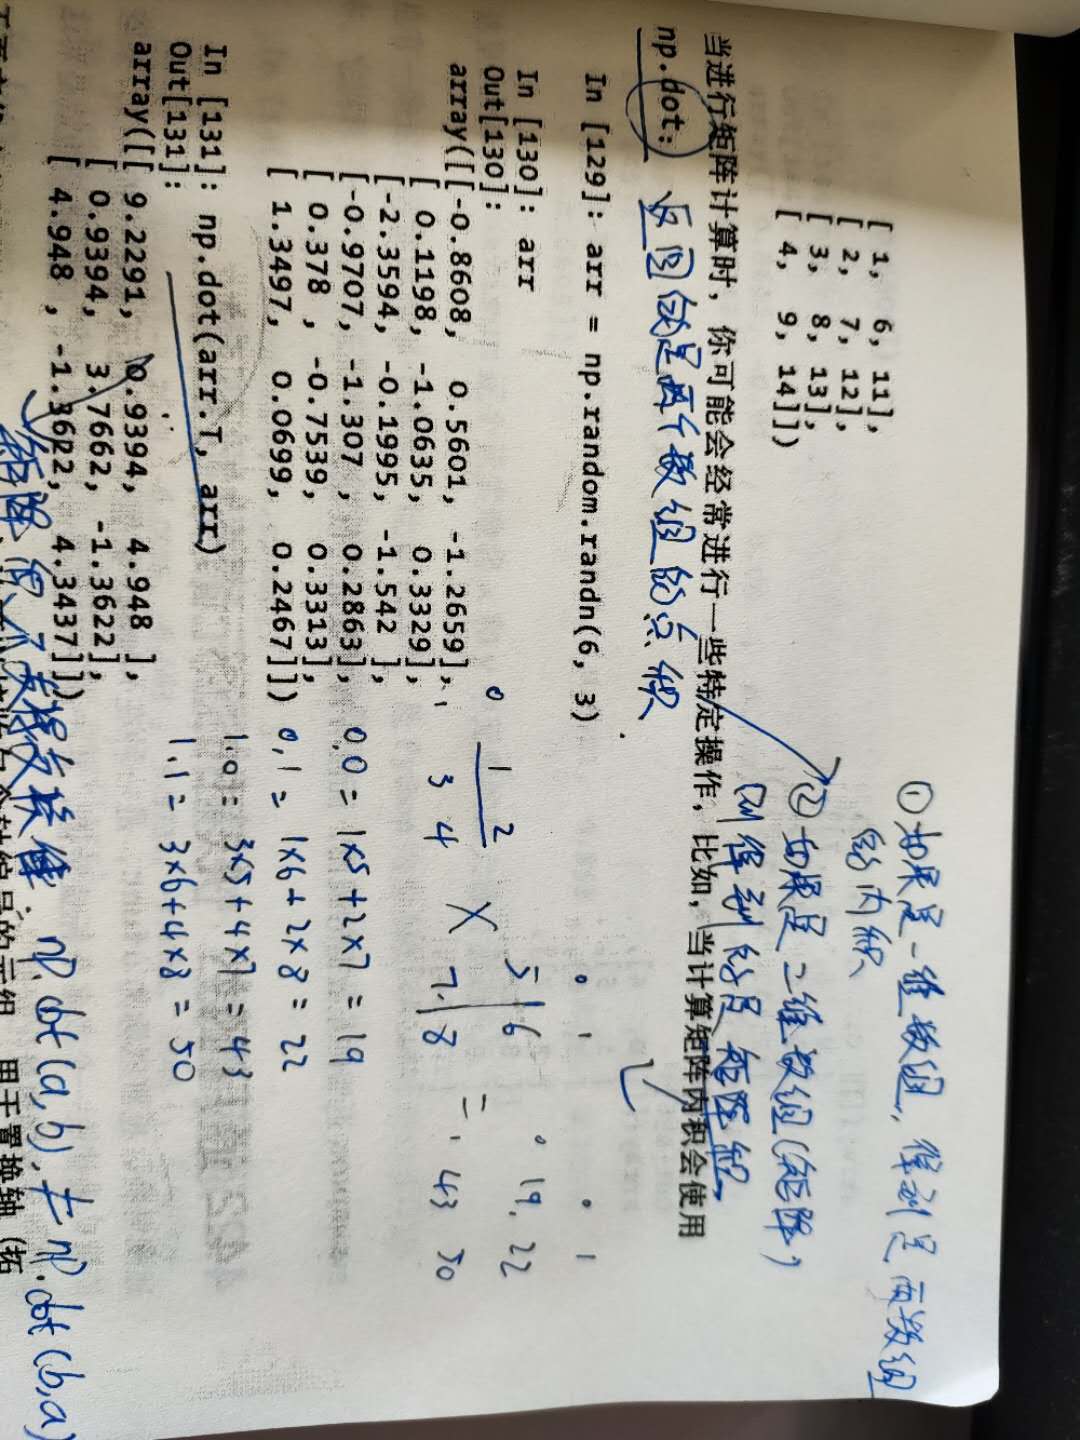 [ 1, 6, 11],
[ 2, 7, 12],
[ 3, 8, 13],
[ 4, 9, 14]])
① 如果是一维数组, 得到是两数组
的内积
② 如果是二维数组(矩阵)
则得到的是矩阵积
当进行矩阵计算时，你可能会经常进行一些特定操作，比如，当计算矩阵内积会使用
np.dot:
返回的是两个数组的点积
In [129]: arr = np.random.randn(6, 3)
In [130]: arr
Out[130]:
array([[-0.8608, 0.5601, -1.2659],
[ 0.1198, -1.0635, 0.3329],
[-2.3594, -0.1995, -1.542 ],
[-0.9707, -1.307 , 0.2863],
[ 0.378 , -0.7539, 0.3313],
[ 1.3497, 0.0699, 0.2467]])
0 1 0 1
0 1 2 5 6 0 19. 22
1 3 4 X 7. 8 = 1 43 50
0,0 = 1x5+2x7 = 19
0,1 = 1x6+2x8 = 22
1.0 = 3x5+4x7 = 43
1.1 = 3x6+4x8 = 50
In [131]: np.dot(arr.T, arr)
Out[131]:
array([[ 9.2291, 0.9394, 4.948 ],
[ 0.9394, 3.7662, -1.3622],
[ 4.948 , -1.3622, 4.3437]])
矩阵积 np.dot(a,b) ≠ np.dot(b,a)
轴编号的元组，用于置换轴（拓